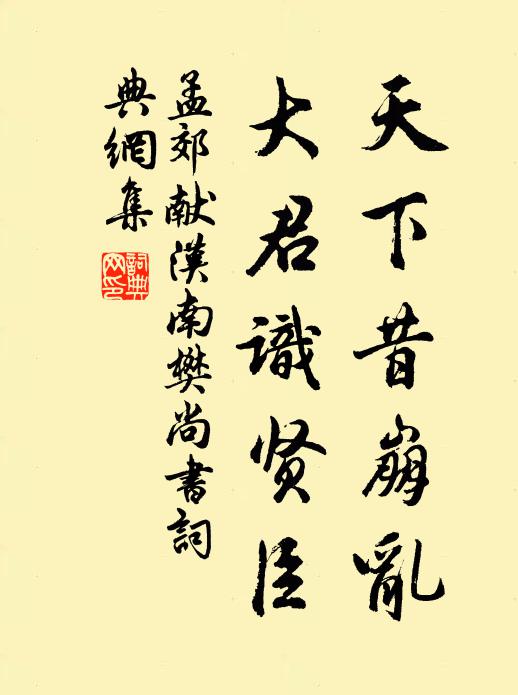 天下昔崩亂
大君識贤臣
孟郊献漢南樊尚書詞
典網集
詞典
网印